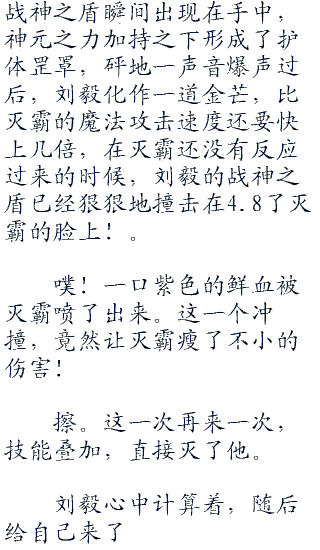 战神之盾瞬间出现在手中，
神元之力加持之下形成了护
体罡罩，砰地一声音爆声过
后，刘毅化作一道金芒，比
灭霸的魔法攻击速度还要快
上几倍，在灭霸还没有反应
过来的时候，刘毅的战神之
盾已经狠狠地撞击在4.8了灭
霸的脸上！。
噗！一口紫色的鲜血被
灭霸喷了出来。这一个冲
撞，竟然让灭霸瘦了不小的
伤害！
擦。这一次再来一次，
技能叠加，直接灭了他。
刘毅心中计算着，随后
给自己来了